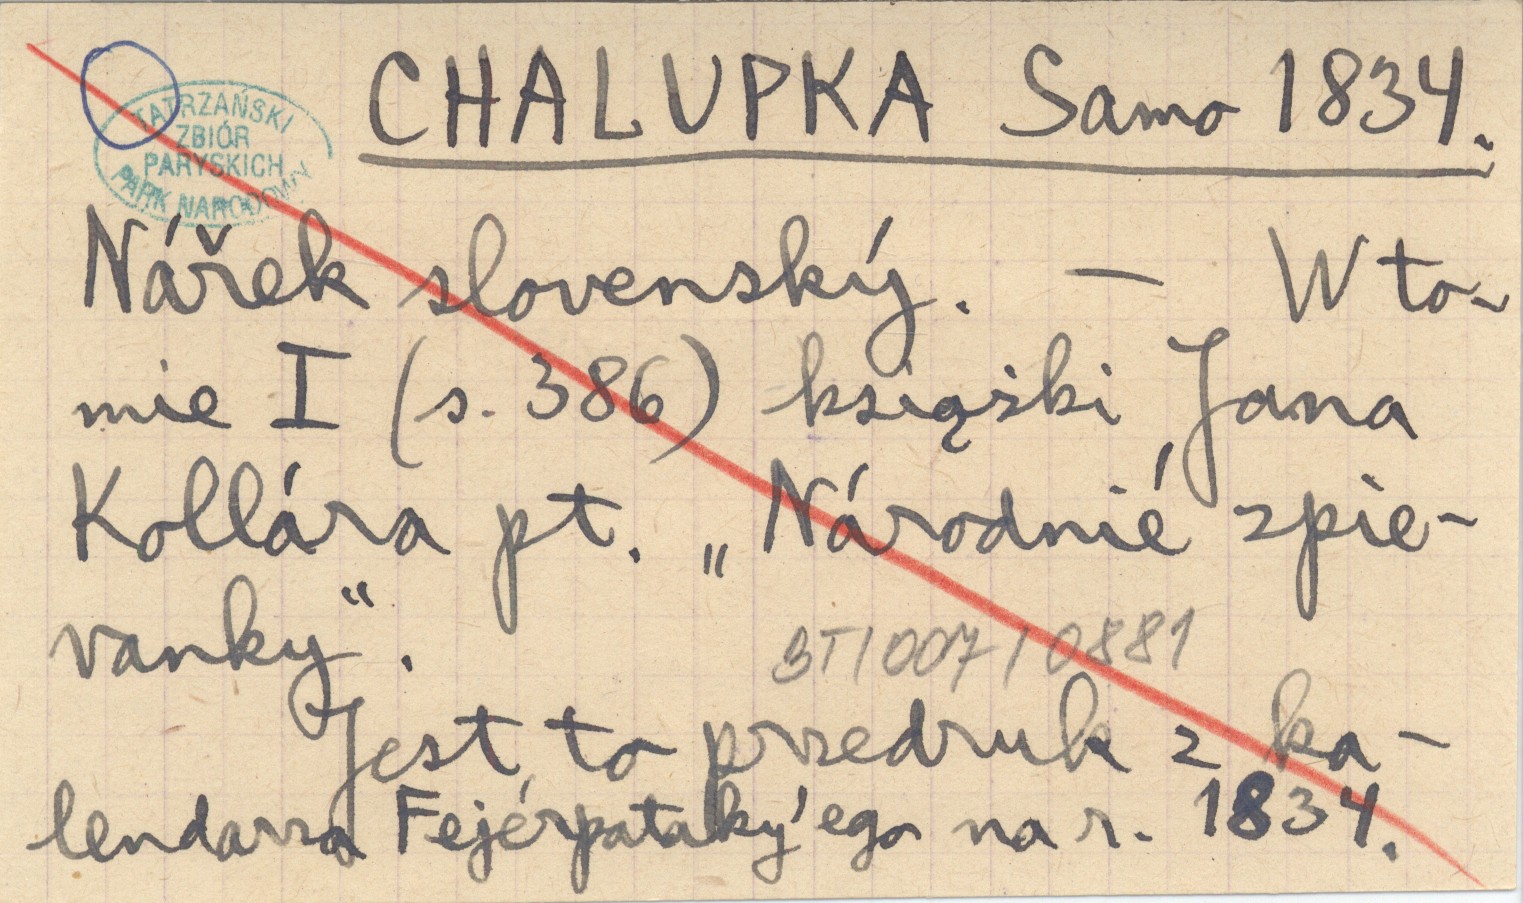 CHALUPKA Samo 1834.
TATRZAŃSKI
ZBIÓR
PARYSKICH
PARK NARODOWY
Nářek slovenský. — W to-
mie I (s. 386) książki Jana
Kollára pt. „Národnié zpie-
vanky".
BT/007/0881
Jest to przedruk z ka-
lendarza Fejérpataky'ego na r. 1834.